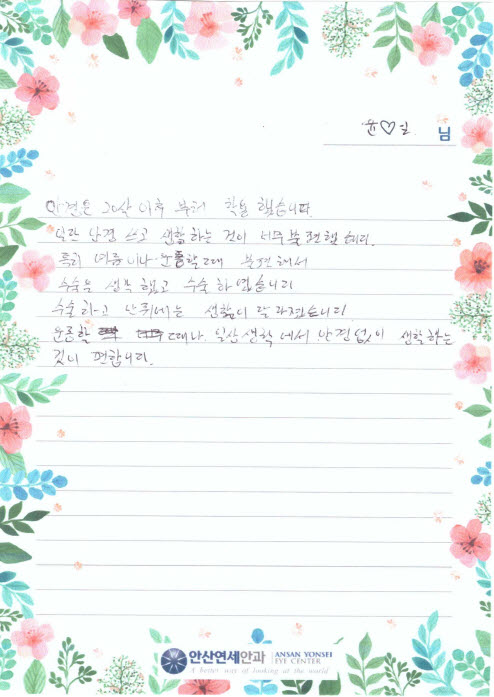 윤♡일 님
안경은 20살 이후 부터 착용 했습니다.
일단 안경 쓰고 생활하는 것이 너무 불편했습니다.
특히 여름이나 운동할때 불편해서
수술을 생각 했고 수술 하였습니다
수술하고 난뒤에는 생활이 달라졌습니다
운동할 때나 일상생활에서 안경없이 생활하는
것이 편합니다.
안산연세안과 ANSAN YONSEI EYE CENTER
A better way of looking at the world